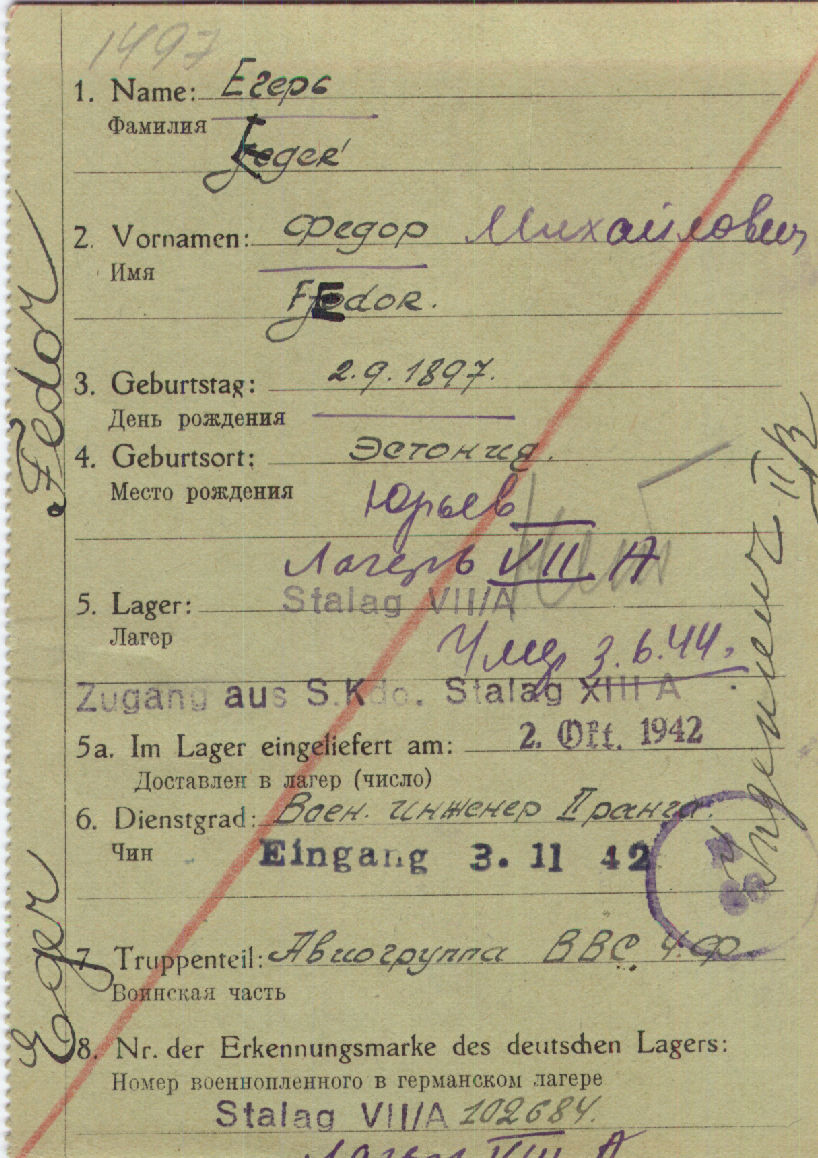 1497
1. Name: Егерь
Фамилия
Jeger
2. Vornamen: Федор Михайлович
Имя
Fjedor.
3. Geburtstag: 2.9.1897.
День рождения
4. Geburtsort: Эстония.
Место рождения
Юрьев
Лагерь VII A
5. Lager: Stalag VII/A
Лагер
Умер 3.6.44.
Zugang aus S.Kdo. Stalag XIII A
5a. Im Lager eingeliefert am: 2. Okt. 1942
Доставлен в лагер (число)
6. Dienstgrad: Воен. инженер II ранга.
Чин
Eingang 3. 11 42
7. Truppenteil: Авиогруппа ВВС Ч.Ф
Воинская часть
8. Nr. der Erkennungsmarke des deutschen Lagers:
Номер военнопленного в германском лагере
Stalag VII/A 102684.
Лагерь VIII A
Eger Fedor